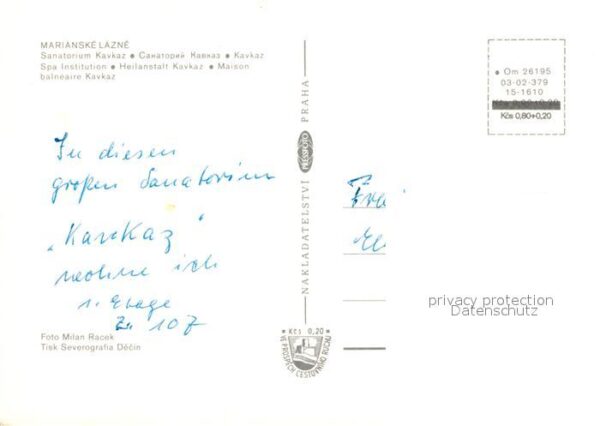 MARIÁNSKÉ LÁZNĚ
Sanatorium Kavkaz • Санаторий Кавказ • Kavkaz
Spa Institution • Heilanstalt Kavkaz • Maison
balnéaire Kavkaz
In diesem
großen Sanatorium
„Kavkaz"
wohne ich
1. Etage
Zi 107
Foto Milan Racek
Tisk Severografia Děčín
NAKLADATELSTVÍ PRESSFOTO PRAHA
Kčs 0,20
VE PROSPĚCH CESTOVNÍHO RUCHU
• Om 26195
03-02-379
15-1610
Kčs 0,80+0,20
privacy protection
Datenschutz